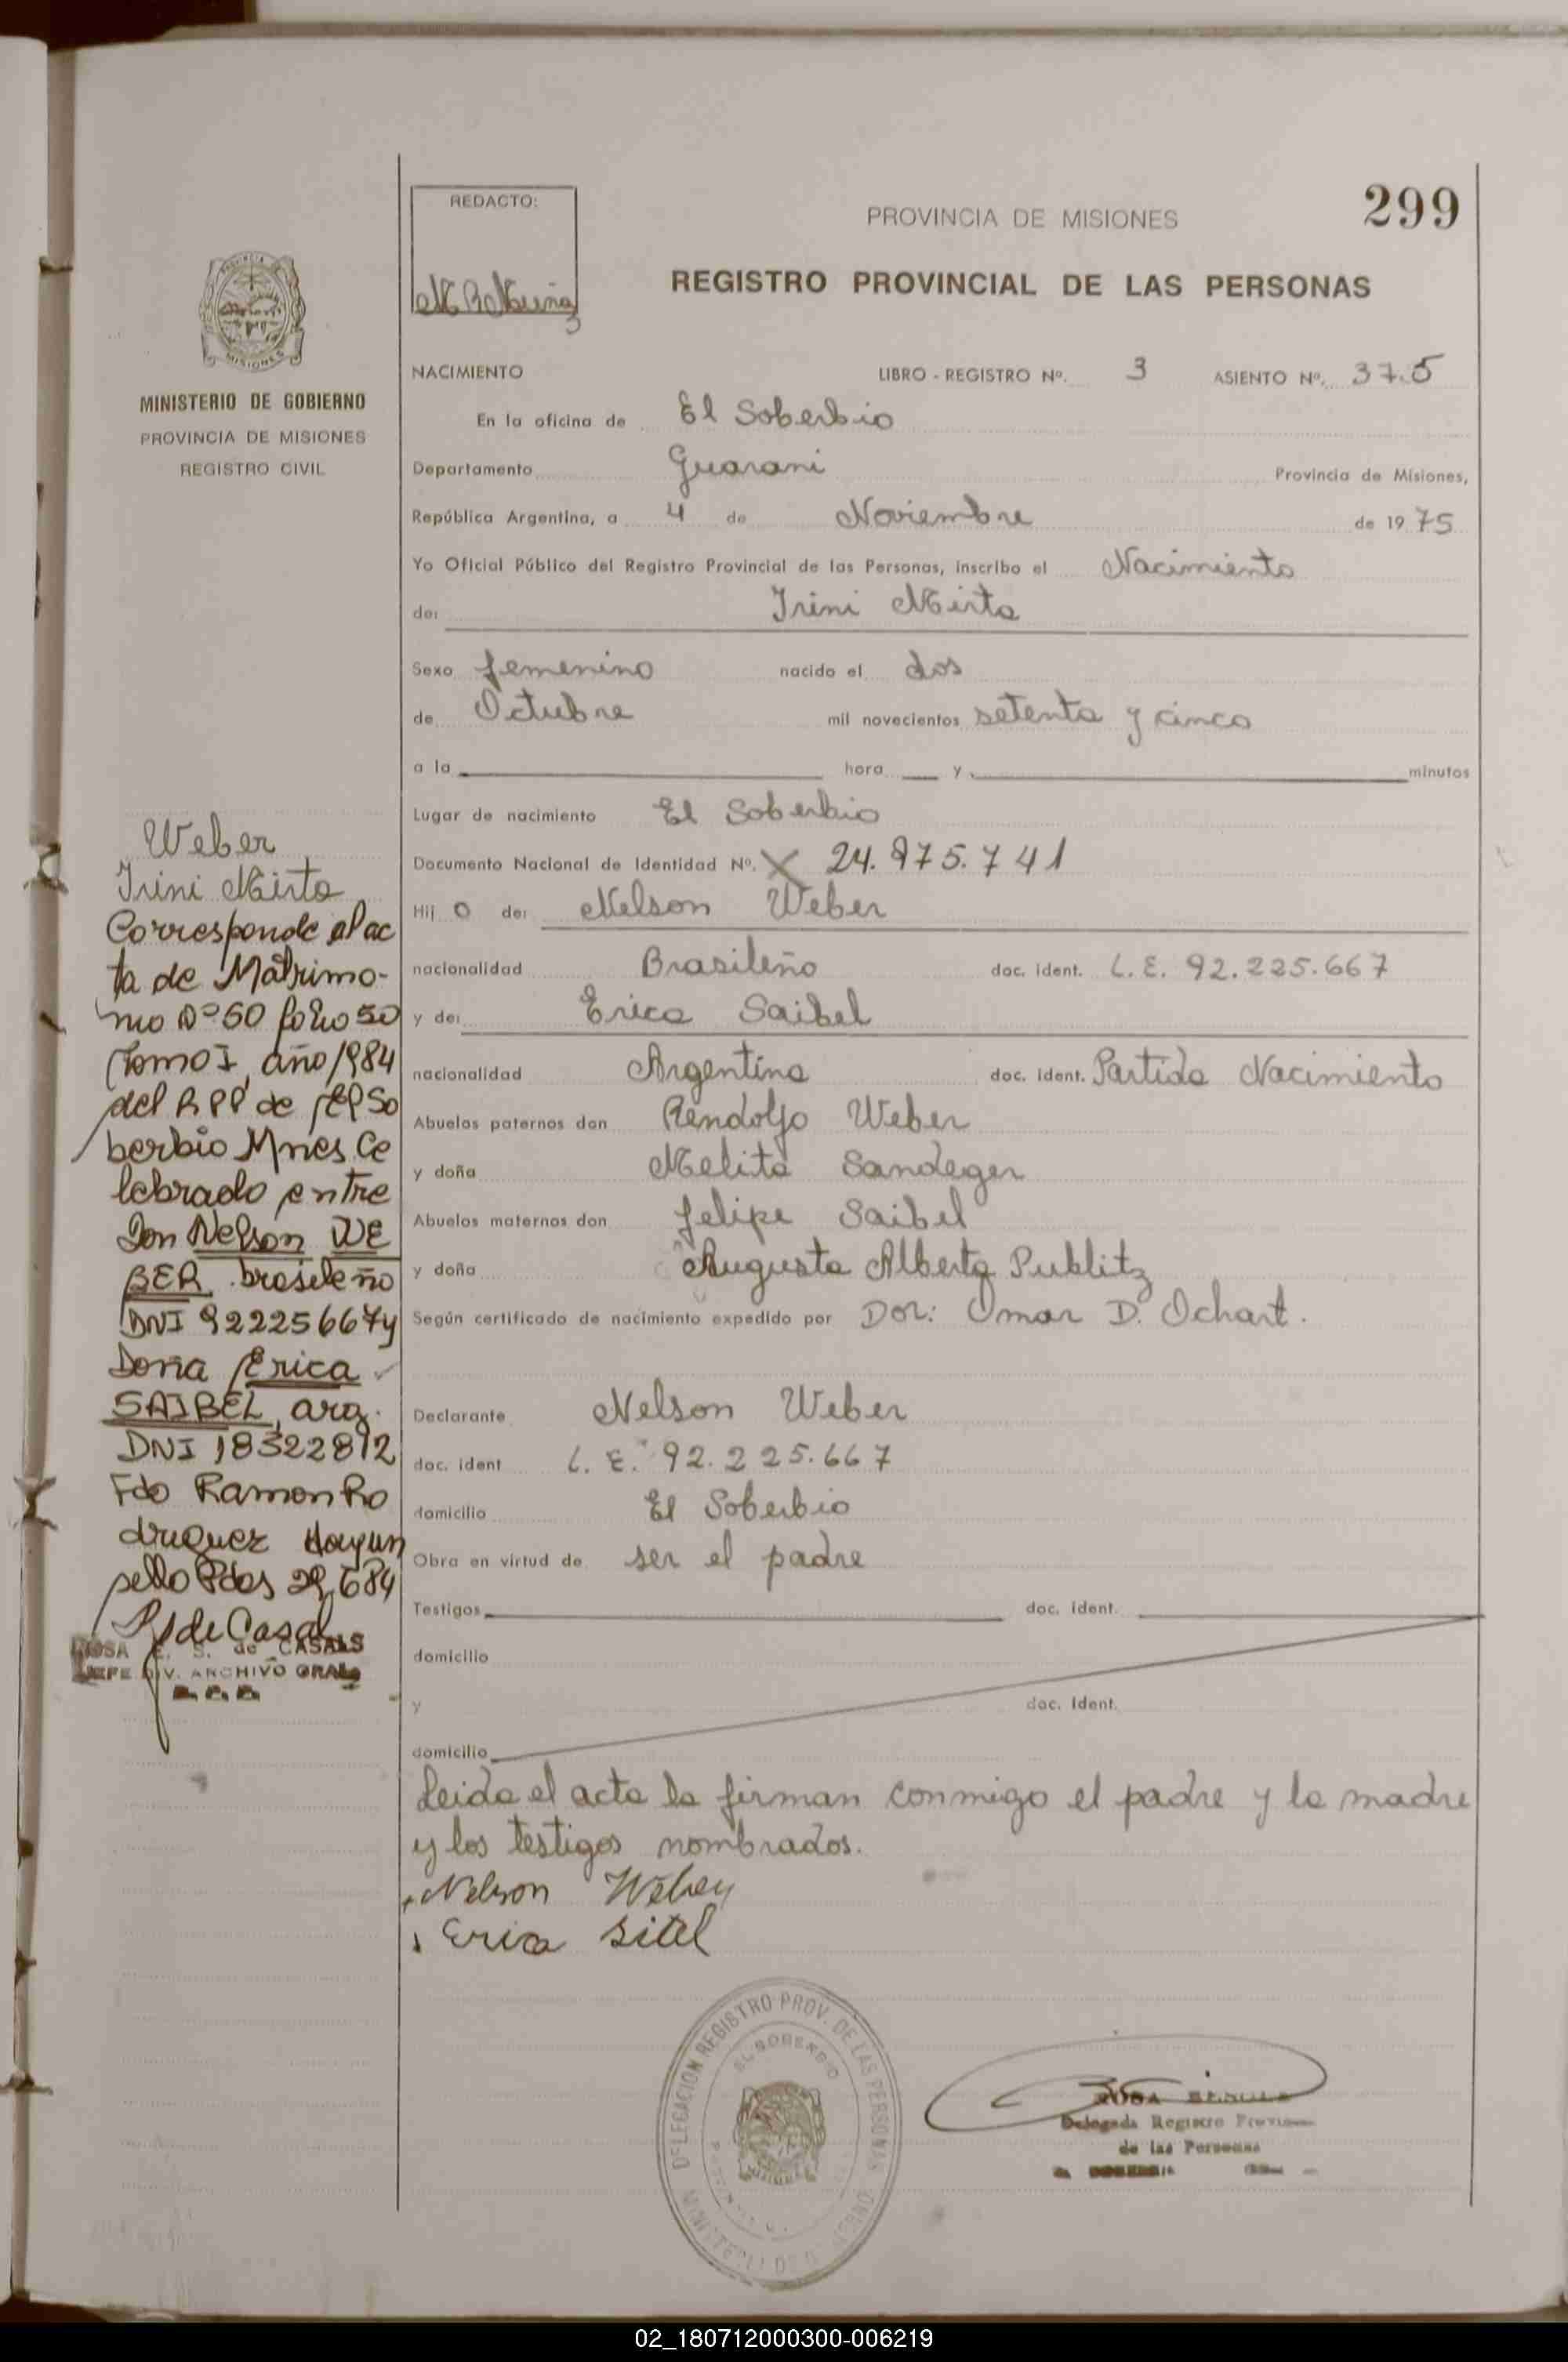 299
REDACTO:
PROVINCIA DE MISIONES
REGISTRO PROVINCIAL DE LAS PERSONAS
MISIONES
MINISTERIO DE GOBIERNO
PROVINCIA DE MISIONES
REGISTRO CIVIL
NACIMIENTO LIBRO - REGISTRO Nº. 3 ASIENTO Nº. 375
En la oficina de El Soberbio
Departamento Guarani Provincia de Misiones,
República Argentina, a 4 de Noviembre de 1975
Yo Oficial Público del Registro Provincial de las Personas, inscribo el Nacimiento
de: Irini Mirta
Sexo femenino nacido el dos
de Octubre mil novecientos setenta y cinco
a la hora y minutos
Lugar de nacimiento El Soberbio
Documento Nacional de Identidad Nº. X 24.975.741
Hij o de: Nelson Weber
nacionalidad Brasileño doc. ident. L.E. 92.225.667
y de: Erica Saibel
nacionalidad Argentina doc. ident. Partida Nacimiento
Abuelos paternos don Rendolfo Weber
y doña Melita Sandeger
Abuelos maternos don Felipe Saibel
y doña Augusta Alberta Publitz
Según certificado de nacimiento expedido por Dor: Omar D. Ochart.
Declarante Nelson Weber
doc. ident L. E. 92.225.667
domicilio El Soberbio
Obra en virtud de ser el padre
Testigos doc. ident.
domicilio
y doc. ident.
domicilio
Leida el acta la firman conmigo el padre y la madre
y los testigos nombrados.
Nelson Weber
Erica Sitel
Weber
Irini Mirta
Corresponde al ac
ta de Matrimo-
nio Nº 50 folio 50
Tomo I, año 1984
del RPP de El So
berbio Mnes Ce
lebrado entre
Don Nelson WE
BER brasileño
DNI 92225667 y
Doña Erica
SAIBEL, arg.
DNI 18322812
Fdo Ramon Ro
driguez Hayun
sello Pdas 29,684
R S de Casal
ROSA E. S. de CASALS
JEFE DIV. ARCHIVO GRAL
DELEGACION REGISTRO PROV. DE LAS PERSONAS
EL SOBERBIO
ROSA
Delegada Registro Provin
de las Personas
02_180712000300-006219